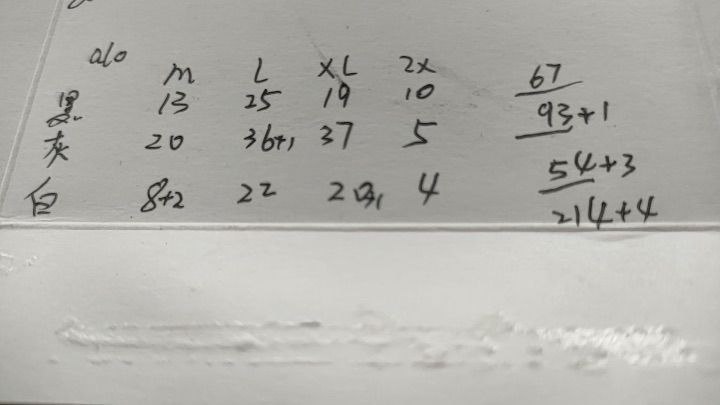 alo M L XL 2X
黑 13 25 19 10 67
灰 20 36+1 37 5 93+1
白 8+2 22 20+1 4 54+3
214+4